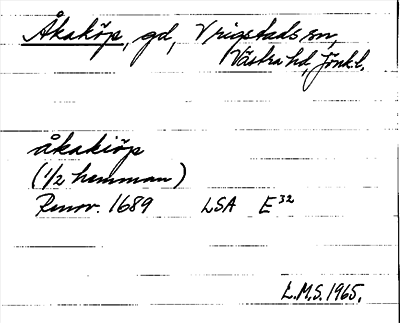 Åkaköp, gd, Vrigstads sn,
Västra hd, Jönk.l.
åkakiöp
(1/2 hemman)
Renov. 1689 LSA E 32
L.M.S. 1965.